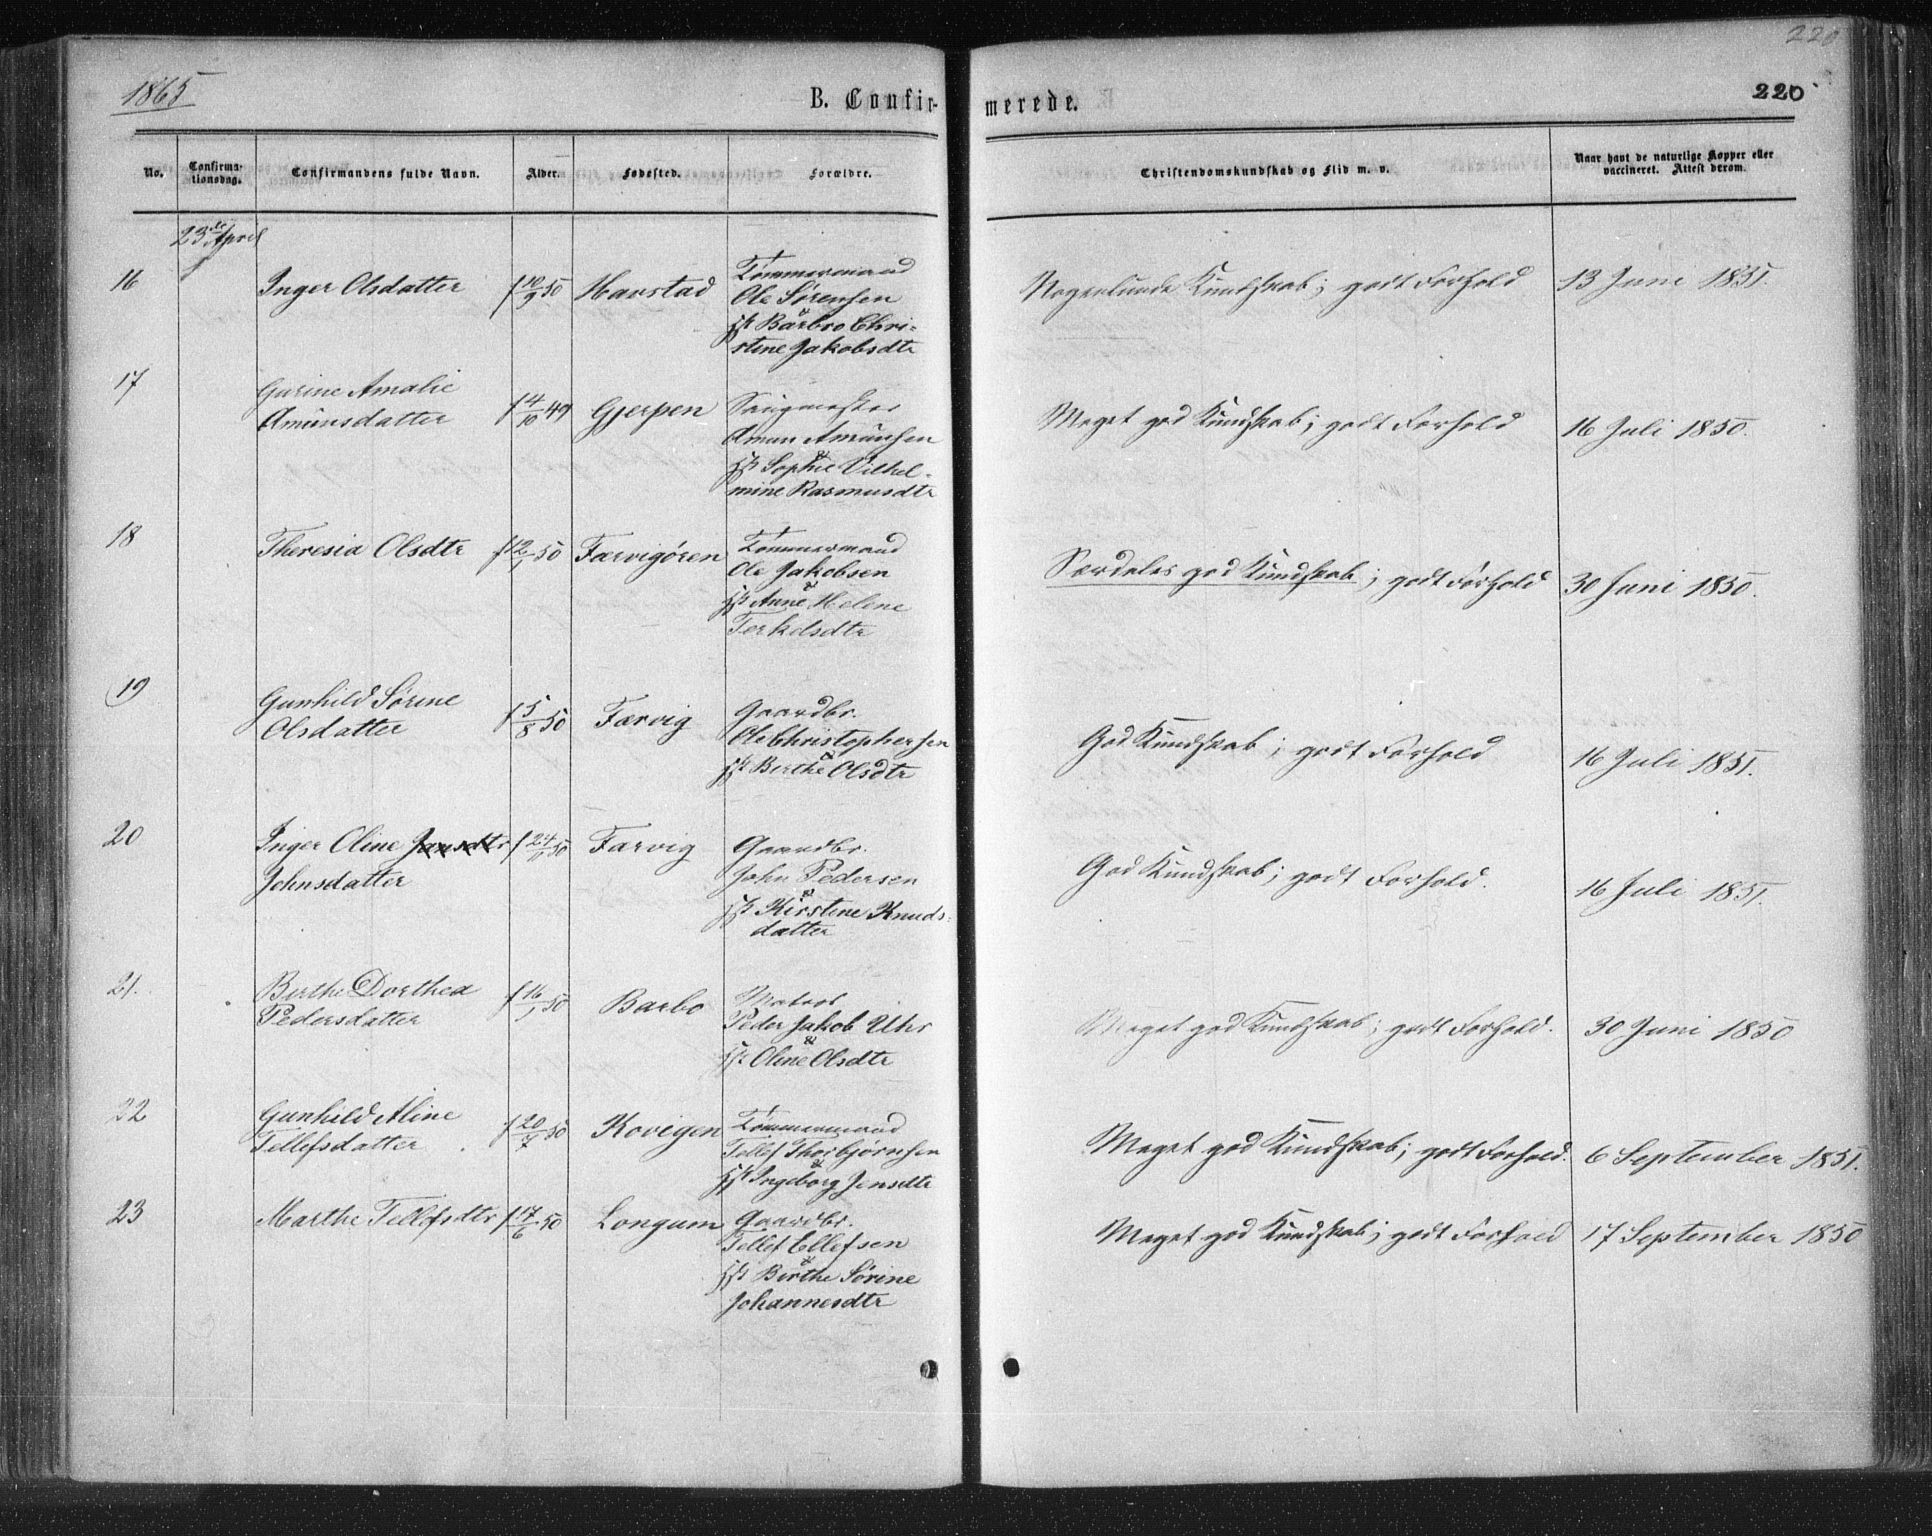 220
1865
B. Confirmerede.
220
No.
Confirmationsdag.
Confirmandens fulde Navn.
Alder.
Fødested.
Forældre.
Christendomskundskab og Flid m. v.
Naar havt de naturlige Kopper eller vaccineret. Attest derom.
23de April
16
Inger Olsdatter
f 10/9 50
Havstad
Tømmermand
Ole Sørensen
&
Barbro Chri-
stine Jakobsdtr
Nogenlunde Kundskab; godt Forhold
13 Juni 1851.
17
Gurine Amalie
Amunsdatter
f 4/10 49
Gjerpen
Saugmester
Amun Amunsen
&
Sophie Vilhel-
mine Rasmusdtr
Meget god Kundskab; godt Forhold
16 Juli 1850.
18
Theresia Olsdtr
f 12/1 50
Færvigøren
Tømmermand
Ole Jakobsen
&
Anne Helene
Terkelsdtr
Særdeles god Kundskab; godt Forhold
30 Juni 1850.
19
Gunhild Sørine
Olsdatter
f 5/8 50
Færvig
Gaardbr.
Ole Christophersen
&
Berthe Olsdtr
God Kundskab; godt Forhold
16 Juli 1851.
20
Inger Oline Jansdtr
Johnsdatter
50
Færvig
Gaardbr.
John Pedersen
&
Kirstine Knuds-
datter
God Kundskab; godt Forhold.
16 Juli 1851.
21.
Berthe Dorthea
Pedersdatter
f 16/1 50
Barbo
Matros
Peder Jakob Uhr
&
Oline Olsdtr
Meget god Kundskab; godt Forhold.
30 Juni 1850
22
Gunhild Aline
Tellefsdatter
f 20/7 50
Kovigen
Tømmermand
Tellef Thorbjørnsen
&
Ingeborg Jensdtr
Meget god Kundskab; godt Forhold.
6 September 1851.
23
Marthe Tellefsdtr
f 17/6 50
Longum
Gaardbr.
Tellef Ellefsen
&
Birthe Sørine
Johannesdtr
Meget god Kundskab; godt Forhold
17 September 1850